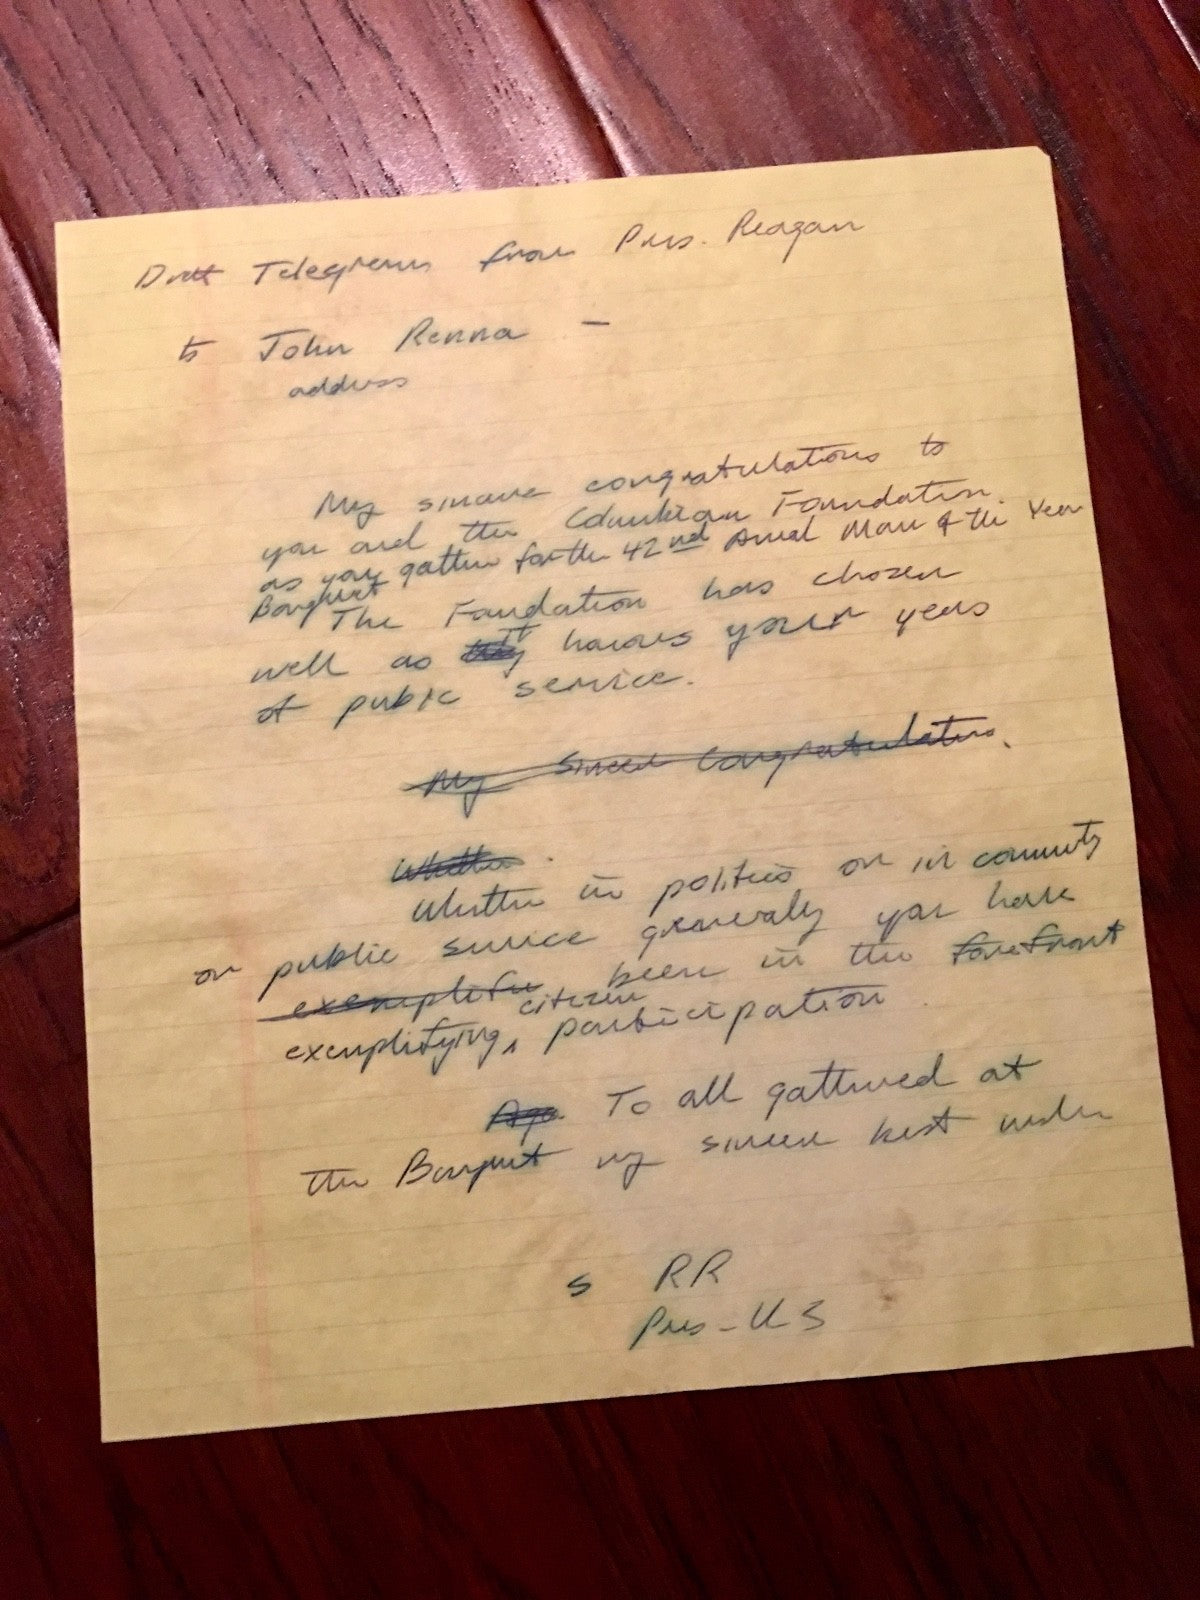 Draft Telegram from Pres. Reagan
to John Renna –
address
My sincere congratulations to
you and the Columbian Foundation.
as you gather for the 42nd Annual Man of the Year
Banquet
The Foundation has chosen
well as it honors your years
of public service.
My Sincere Congratulations.
Whether.
Whether in politics or in community
or public service generally you have
exemplify been in the forefront
citizen
exemplifying, participation.
To all gathered at
the Banquet my sincere best wishes
s RR
Pres - US